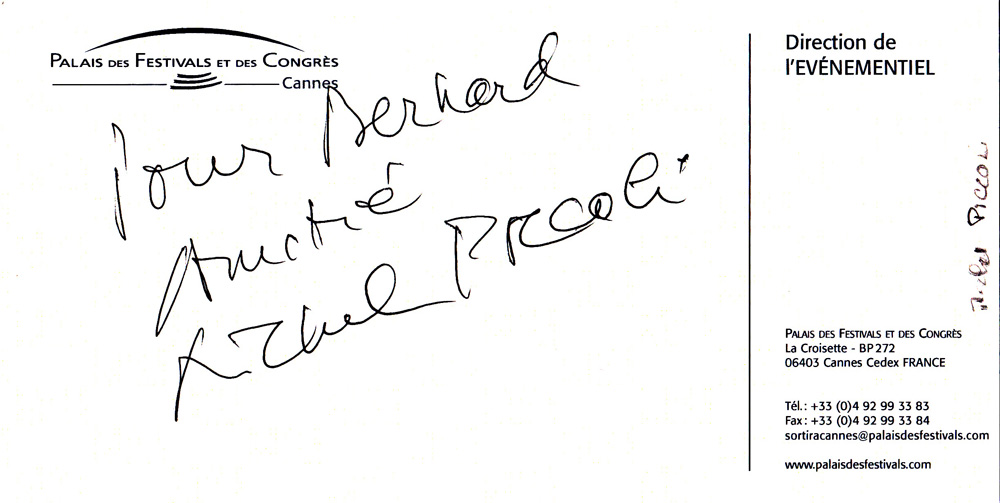 PALAIS DES FESTIVALS ET DES CONGRÈS
Cannes
Pour Bernard
Amitié
Michel Piccoli
Direction de
l'EVÉNEMENTIEL
Michel Piccoli
PALAIS DES FESTIVALS ET DES CONGRÈS
La Croisette - BP 272
06403 Cannes Cedex FRANCE
Tél.: +33 (0)4 92 99 33 83
Fax: +33 (0)4 92 99 33 84
sortiracannes@palaisdesfestivals.com
www.palaisdesfestivals.com